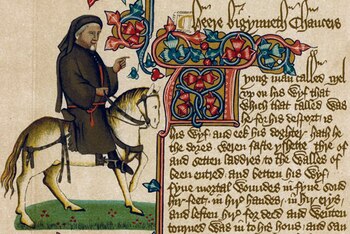 Heere bigynneth Chaucers
A yong man called Mel
up on his wyf that
which that called was
he for his desport is
his wyf and eek his doghter hath he
the dores weren faste yshette thre of
and setten laddres to the walles of
been entred, and betten his wyf
fyve mortal woundes in fyve sond
hir feet, in hir handes, in hir erys
and leften hir for deed and wenten
torned was in to his hous, and saw